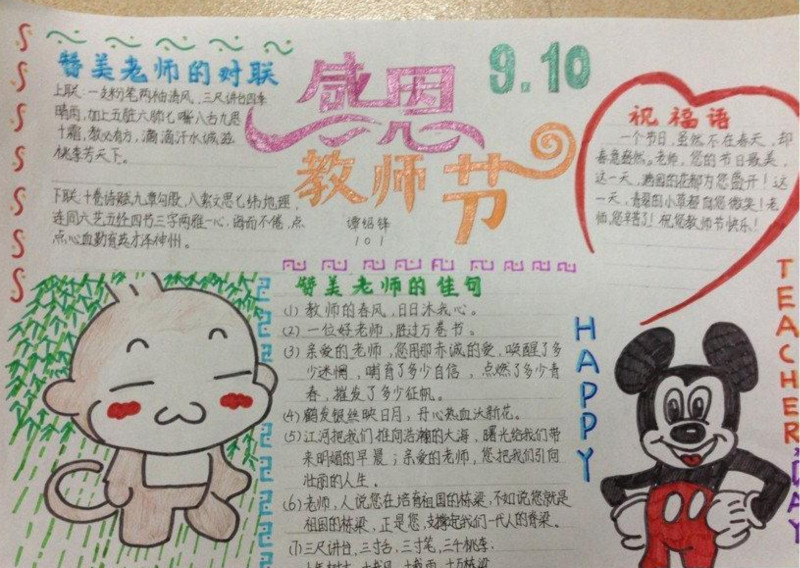 赞美老师的对联
上联:一支粉笔两袖清风,三尺讲台四季
晴雨,加上五脏六肺七嘴八舌九思
十霜,教必有方,滴滴汗水诚滋
桃李芳天下。
下联:十卷诗赋九章勾股,八索文思七纬地理,
连同六艺五经四书三字两雅一心,诲而不倦,点
点心血勤育英才泽神州。
感恩
教师节
9.10
谭绍锋
101
祝福语
一个节日,虽然不在春天,却
春意盎然。老师,您的节日最美,
这一天,满园的花都为您盛开!这
一天,青翠的小草都向您微笑!老
师,您辛苦了!祝您教师节快乐!
赞美老师的佳句
(1) 教师的春风,日日沐我心。
(2) 一位好老师,胜过万卷书。
(3) 亲爱的老师,您用那赤诚的爱,唤醒了多
少迷惘,哺育了多少自信,点燃了多少青
春,摧发了多少征帆。
(4) 鹤发银丝映日月,丹心热血沃新花。
(5) 江河把我们推向浩瀚的大海,曙光给我们带
来明媚的早晨;亲爱的老师,您把我们引向
壮丽的人生。
(6) 老师,人说您在培育祖国的栋梁,不如说您就是
祖国的栋梁,正是您,支撑起我们一代人的脊梁。
(7) 三尺讲台,三寸舌,三寸笔,三千桃李.
HAPPY
TEACHER'S DAY